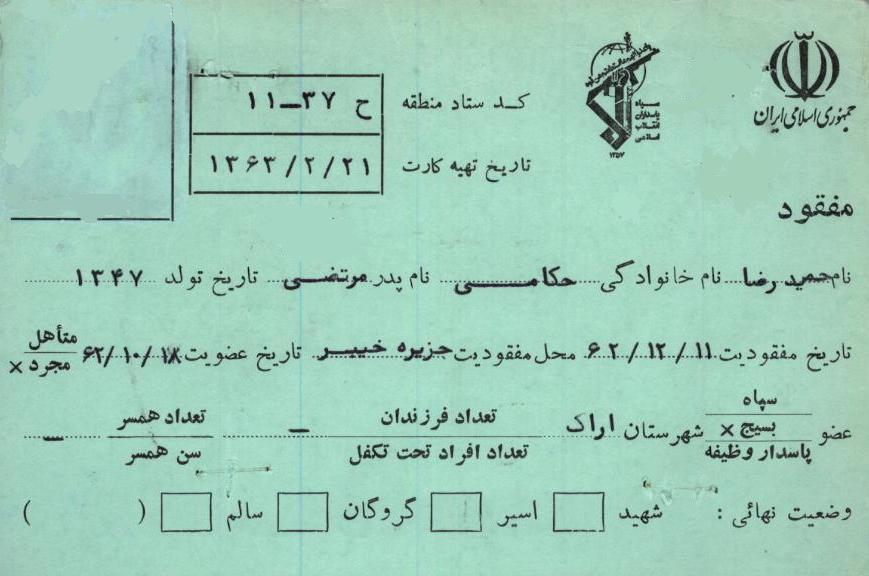 جمهوری اسلامی ایران
سپاه
پاسداران
انقلاب
اسلامی
۱۳۵۷
کد ستاد منطقه ح ۳۷-۱۱
تاریخ تهیه کارت ۱۳۶۳/۲/۲۱
مفقود
نام حمید رضا نام خانوادگی حکامی نام پدر مرتضی تاریخ تولد ۱۳۴۷
تاریخ مفقودیت ۶۲/۱۲/۱۱ محل مفقودیت جزیره خیبر تاریخ عضویت ۶۲/۱۰/۱۸ متأهل
مجرد ×
عضو سپاه
بسیج ×
پاسدار وظیفه
شهرستان اراک تعداد فرزندان
تعداد افراد تحت تکفل –
تعداد همسر
سن همسر –
وضعیت نهائی : شهید اسیر گروگان سالم ( )